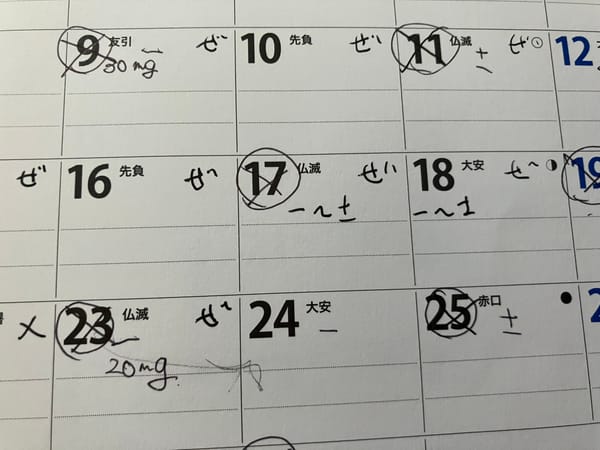 9 友引 ぜ 10 先負 ぜ 11 仏滅 ぜ 12
30mg − ±
ぜ 16 先負 ぜ 17 仏滅 ぜ 18 大安 ぜ 19
−~± −~±
× 23 仏滅 ぜ 24 大安 25 赤口
− − ±
20mg